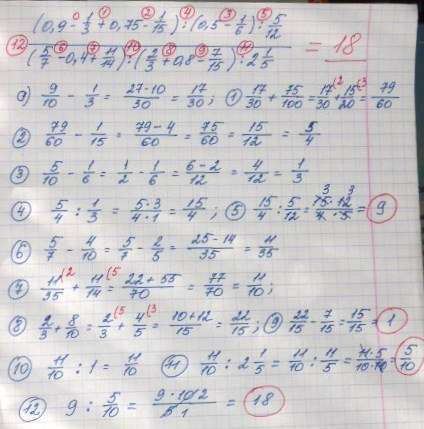 (0,9 - 1/3 + 0,75 - 1/15) : (0,5 - 1/6) : 5/12
(5/7 - 0,4 + 11/14) : (2/3 + 0,8 - 7/15) : 2 1/5
= 18
0) 9/10 - 1/3 = 27-10/30 = 17/30; ① 17/30 + 75/100 = 17/30 + 15/20 = 79/60
② 79/60 - 1/15 = 79-4/60 = 75/60 = 15/12 = 5/4
③ 5/10 - 1/6 = 1/2 - 1/6 = 6-2/12 = 4/12 = 1/3
④ 5/4 : 1/3 = 5·3/4·1 = 15/4; ⑤ 15/4 : 5/12 = 15·12/4·5 = 9
⑥ 5/7 - 4/10 = 5/7 - 2/5 = 25-14/35 = 11/35
⑦ 11/35 + 11/14 = 22+55/70 = 77/70 = 11/10;
⑧ 2/3 + 8/10 = 2/3 + 4/5 = 10+12/15 = 22/15; ⑨ 22/15 - 7/15 = 15/15 = 1
⑩ 11/10 : 1 = 11/10 ⑪ 11/10 : 2 1/5 = 11/10 : 11/5 = 11·5/10·11 = 5/10
⑫ 9 : 5/10 = 9·10 2/5 1 = 18